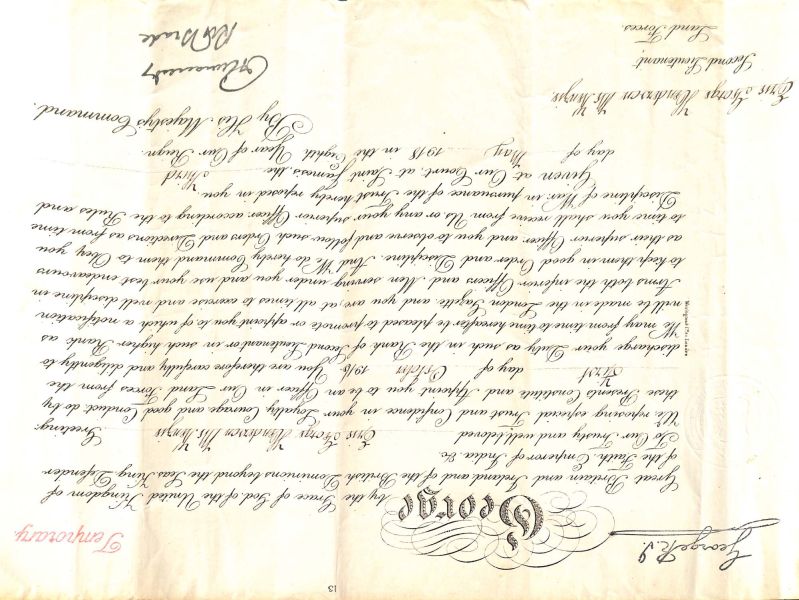 13
George R.I.
Temporary.
George by the Grace of God of the United Kingdom of
Great Britain and Ireland and of the British Dominions beyond the Seas King, Defender
of the Faith, Emperor of India &c.
To Our Trusty and well beloved Eric George Henderson Mc Kenzie Greeting.
We reposing especial Trust and Confidence in your Loyalty Courage and good Conduct do by
these Presents Constitute and Appoint you to be an Officer in Our Land Forces from the
First day of October 1915 You are therefore carefully and diligently to
discharge your Duty as such in the Rank of Second Lieutenant or in such higher Rank as
We may from time to time hereafter be pleased to promote or appoint you to of which a notification
will be made in the London Gazette and you are at all times to exercise and well discipline in
Arms both the inferior Officers and Men serving under you and use your best endeavours
to keep them in good Order and Discipline. And We do hereby Command them to Obey you
as their superior Officer and you to observe and follow such Orders and Directions as from time
to time you shall receive from Us, or any your superior Officer according to the Rules and
Discipline of War, in pursuance of the Trust hereby reposed in you.
Given at Our Court, at Saint James's, the Third
day of May 1918 in the Eighth Year of Our Reign.
By His Majesty's Command.
Eric George Henderson Mc Kenzie
Second Lieutenant,
Land Forces.
R H Brade